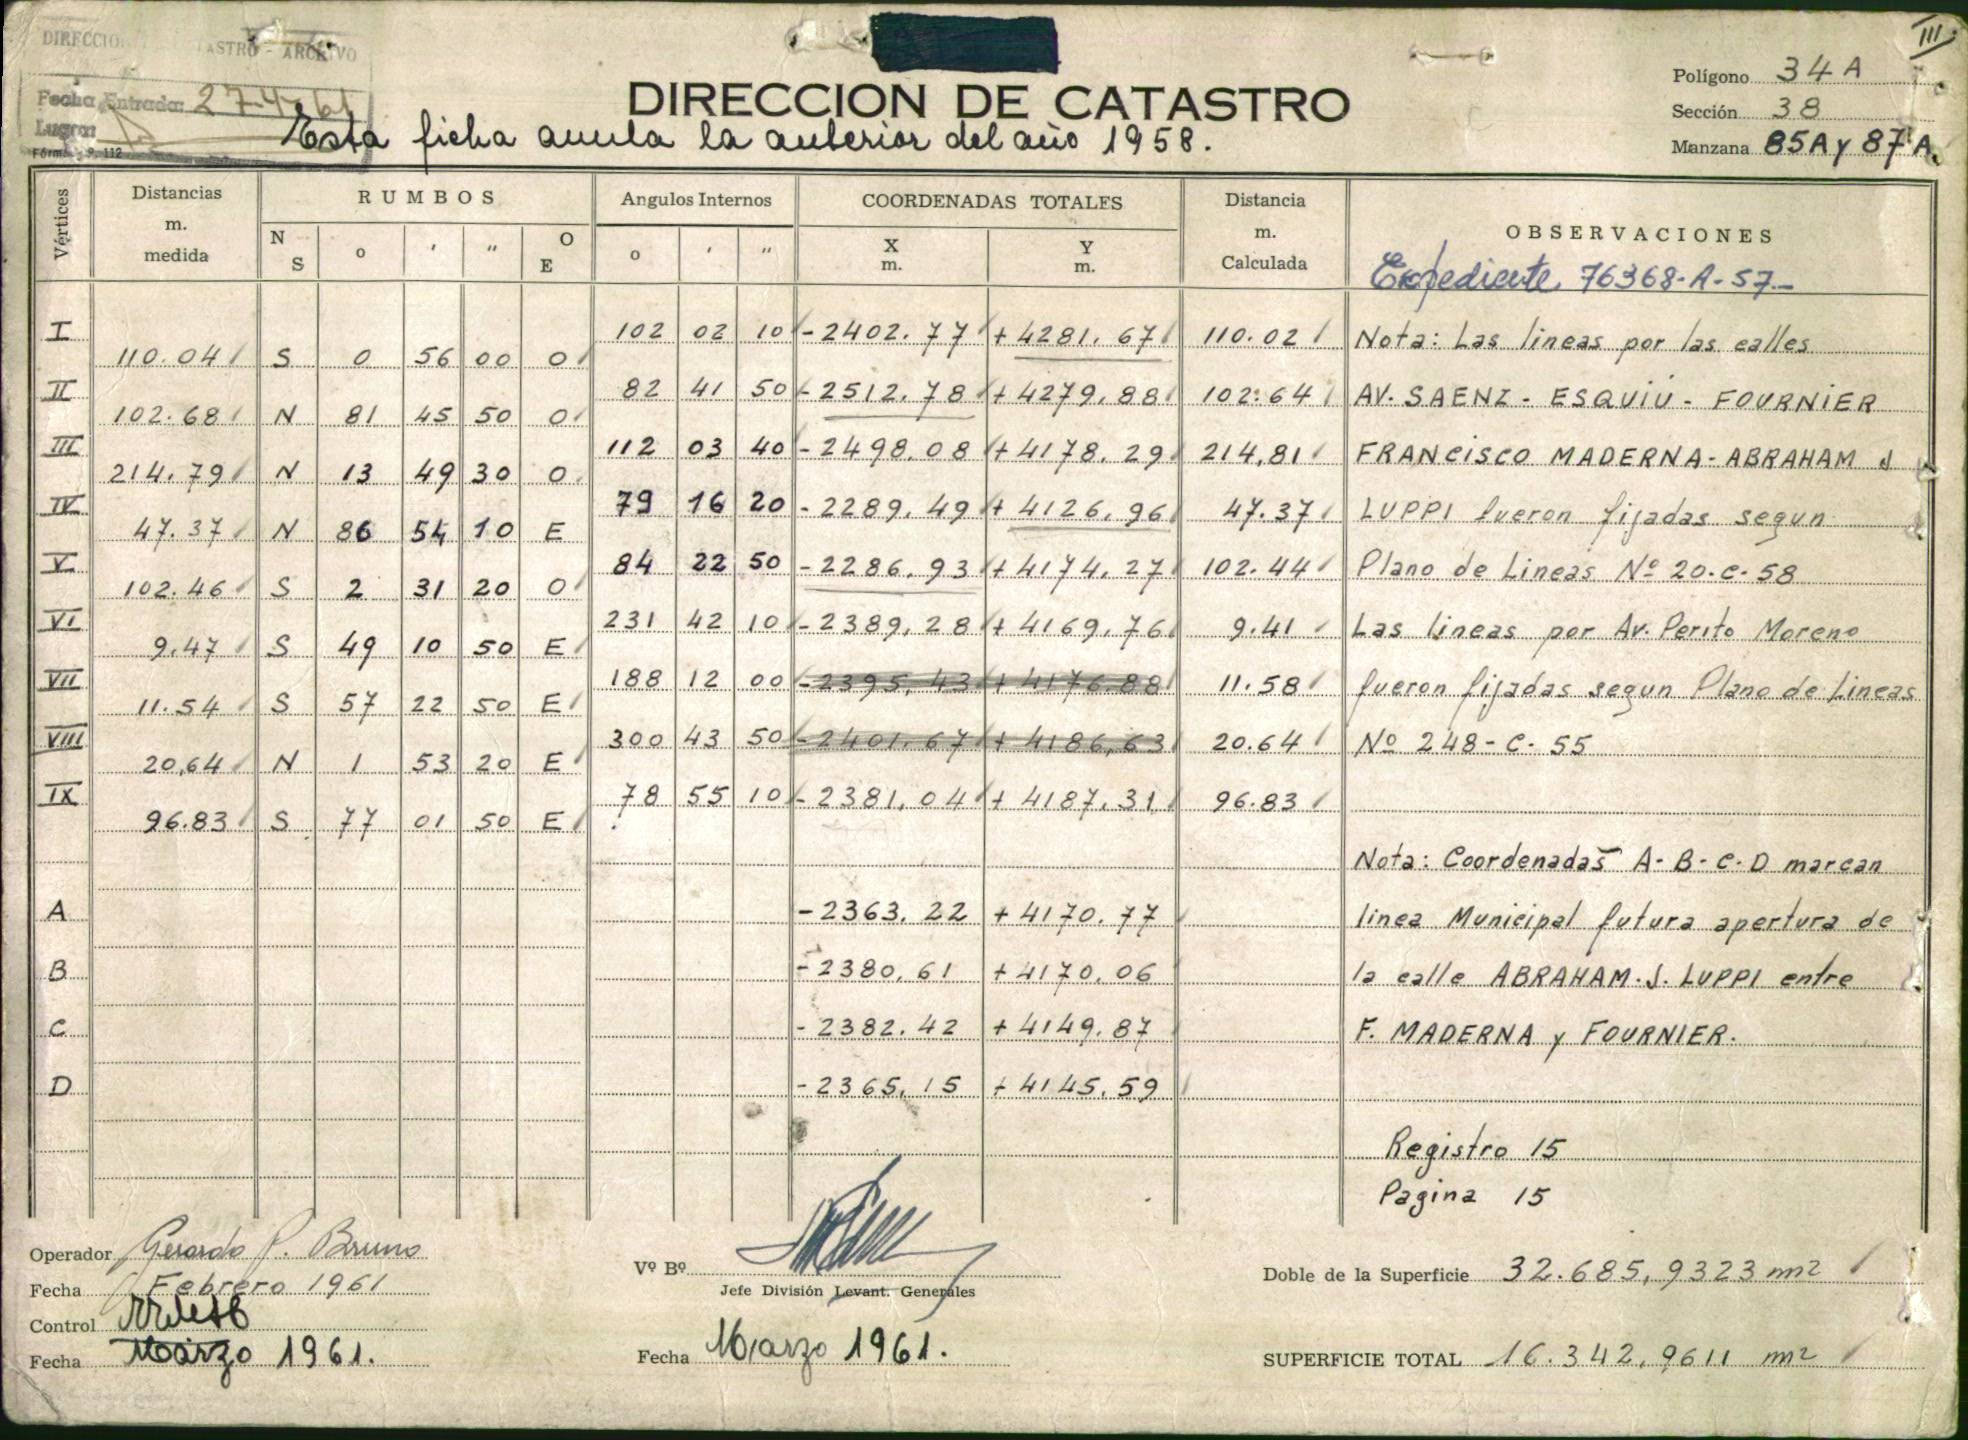 III
DIRECCION CATASTRO - ARCHIVO
Fecha Entrada: 27-4-61
Lugar:
Fórm. 9. 112
DIRECCION DE CATASTRO
Esta ficha anula la anterior del año 1958.
Polígono 34 A
Sección 38
Manzana 85A y 87A.
Vértices Distancias m. medida RUMBOS N S o ' " O E Angulos Internos o ' " COORDENADAS TOTALES X m. Y m. Distancia m. Calculada OBSERVACIONES
Expediente 76368-A-57.-
I 102 02 10 -2402.77 +4281.67 110.02 Nota: Las lineas por las calles
110.04 S 0 56 00 O
II 82 41 50 -2512.78 +4279.88 102.64 AV. SAENZ - ESQUIÚ - FOURNIER
102.68 N 81 45 50 O
III 112 03 40 -2498.08 +4178.29 214,81 FRANCISCO MADERNA - ABRAHAM J
214.79 N 13 49 30 O
IV 79 16 20 -2289.49 +4126.96 47.37 LUPPI fueron fijadas segun
47.37 N 86 54 10 E
V 84 22 50 -2286.93 +4174.27 102.44 Plano de Lineas Nº 20-C-58
102.46 S 2 31 20 O
VI 231 42 10 -2389,28 +4169,76 9.41 Las lineas por Av. Perito Moreno
9.47 S 49 10 50 E
VII 188 12 00 -2395,43 +4176.88 11.58 fueron fijadas segun Plano de Lineas
11.54 S 57 22 50 E
VIII 300 43 50 -2401.67 +4186,63 20.64 Nº 248-C-55
20,64 N 1 53 20 E
IX 78 55 10 -2381,04 +4187,31 96.83
96.83 S 77 01 50 E
Nota: Coordenadas A-B-C-D marcan
A -2363.22 +4170.77 linea Municipal futura apertura de
B -2380,61 +4170.06 la calle ABRAHAM J. LUPPI entre
C -2382.42 +4149.87 F. MADERNA y FOURNIER.
D -2365,15 +4145.59
Registro 15
Pagina 15
Operador Gerardo P. Bruno
Fecha Febrero 1961
Control
Fecha Marzo 1961.
Vº Bº
Jefe División Levant. Generales
Fecha Marzo 1961.
Doble de la Superficie 32.685,9323 m2
SUPERFICIE TOTAL 16.342,9611 m2